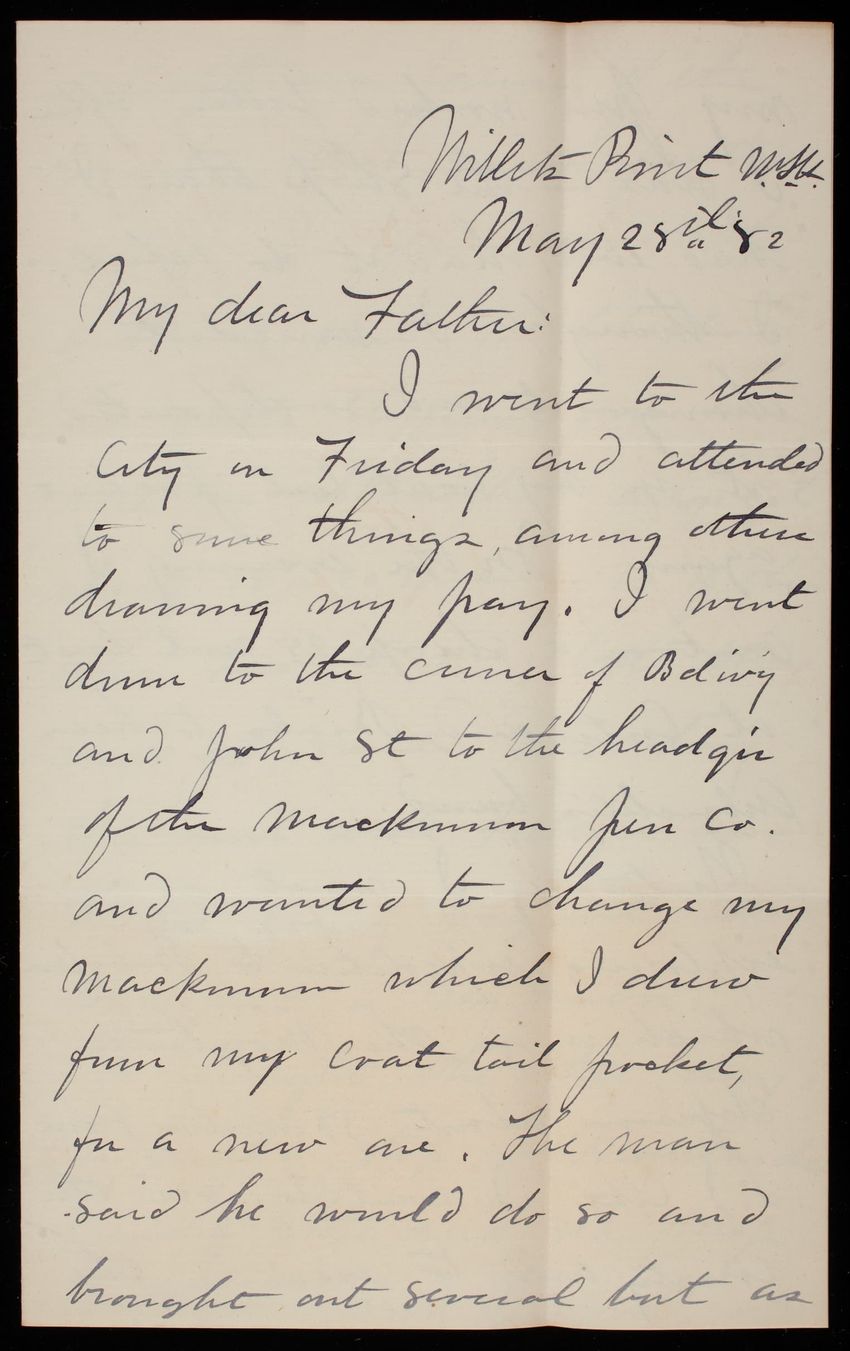 Willets Point N.Y.
May 28th 82
My dear Father:
I went to the
City on Friday and attended
to some things, among others
drawing my pay. I went
down to the corner of Bdwy
and John St to the headqrs
of the Mackinnon Pen Co.
and wanted to change my
Mackinnon which I drew
from my coat tail pocket,
for a new one. The man
said he would do so and
brought out several but as